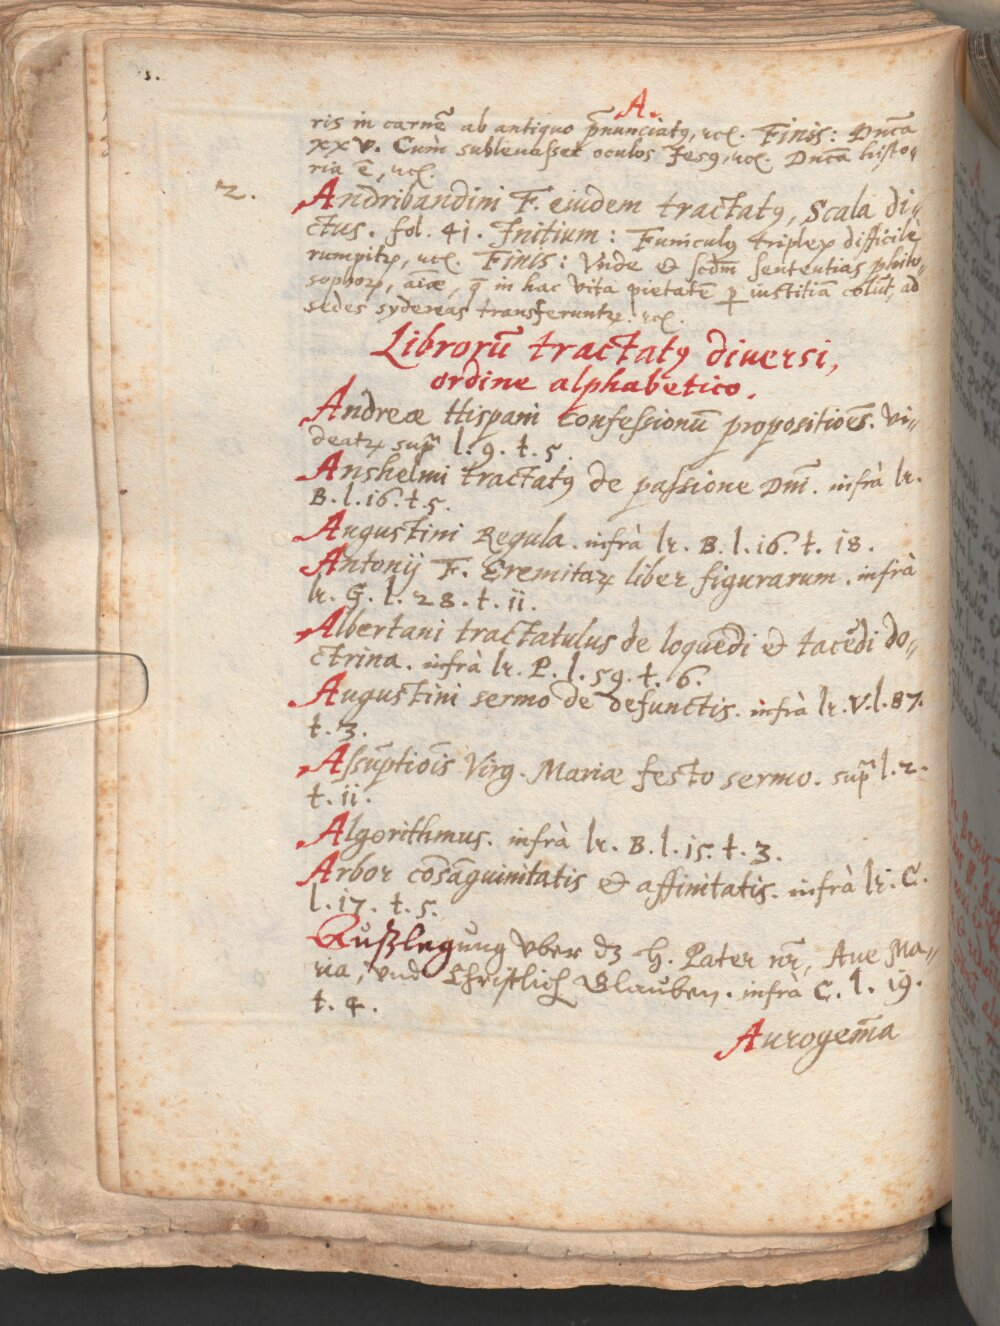 s.
A.
ris in carnē ab antiquo p̄nunciatꝰ, ꝛcꝭ. Finis: Dn̄ca
XXV. Cum subleuasset oculos Jesꝰ, ꝛcꝭ. Dn̄ca histo-
ria ē, ꝛcꝭ.
2. Andribandini F. eiudem tractatꝰ, Scala di-
ctus. fol. 41. Initium: Funiculꝰ triplex difficile
rumpitꝝ, ꝛcꝭ. Finis: Vnde et scd̄m sententias philo-
sophoꝝ, aīae, q̄ in hac vita pietatē ꝑ iustitiā colūt, ad
sedes sydereas transferuntꝝ. ꝛcꝭ.
Librorū tractatꝰ diuersi,
ordine alphabetico.
Andreæ Hispani Confessionū propositioēs. vi-
deatꝝ sup̄ l. 9. t. 5.
Anshelmi tractatꝰ de passione Dn̄i. infrà lr.
B. l. 16. t. 5.
Augustini Regula. infrà lr. B. l. 16. t. 18.
Antonij F. Eremitaꝝ liber figurarum. infrà
lr. G. l. 28. t. ii.
Albertani tractatulus de loquēdi et tacēdi do-
ctrina. infrà lr. P. l. 59. t. 6.
Augustini sermo de defunctis. infrà lr. V. l. 87.
t. 3.
Assūptiōis Virg. Mariæ festo sermo. sup̄ l. 2.
t. ii.
Algorithmus. infrà lr. B. l. 15. t. 3.
Arbor cōsāguinitatis et affinitatis. infrà lr. C.
l. 17. t. 5.
Außlegung vber dz H. Pater nr̄, Aue Ma-
ria, vnd Christlich Glauben. infra C. l. 19.
t. 4.
Aurogem̄a